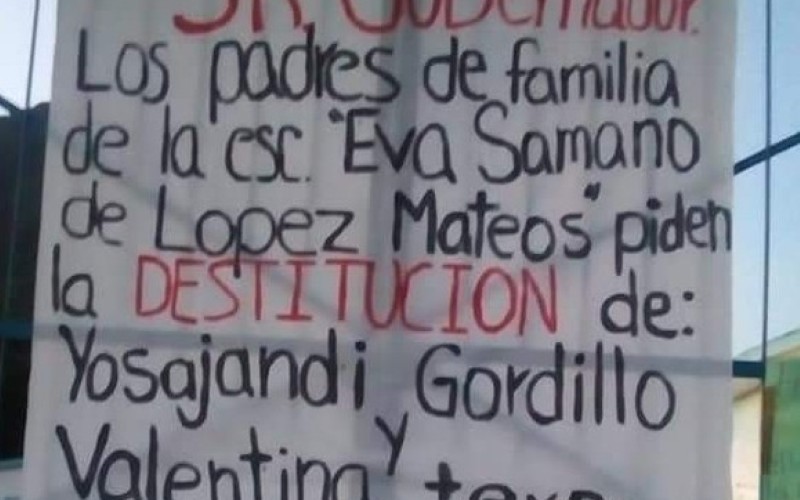 SR. Gobernador.
Los padres de familia
de la esc. "Eva Samano
de Lopez Mateos" piden
la DESTITUCION de:
Yosajandi Gordillo
Valentina y